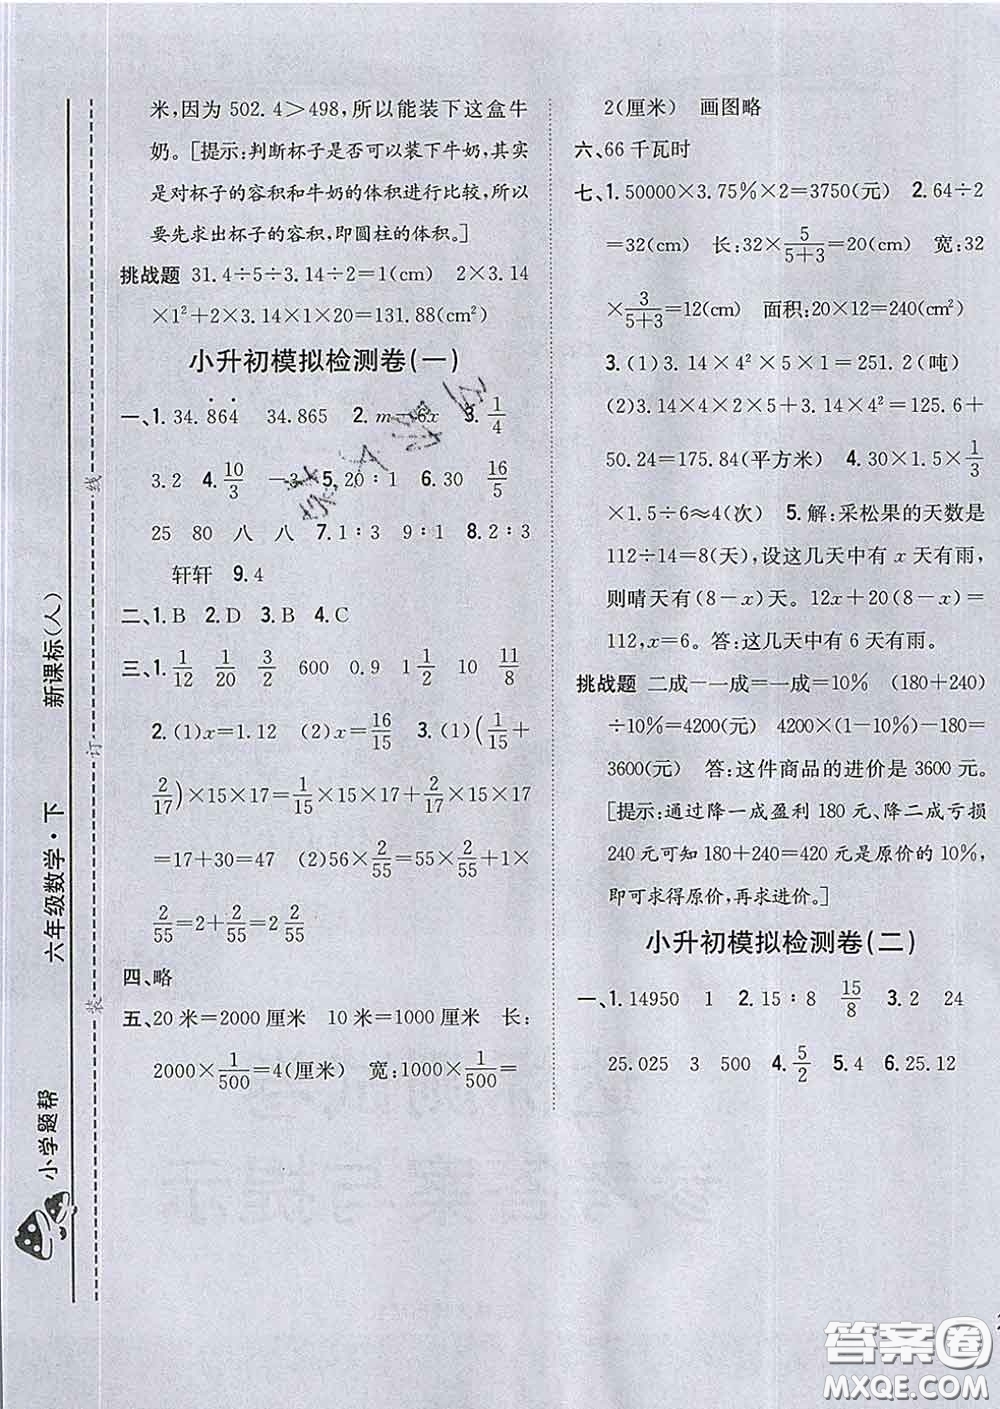 米,因为 502.4＞498,所以能装下这盒牛
奶。[提示:判断杯子是否可以装下牛奶,其实
是对杯子的容积和牛奶的体积进行比较,所以
要先求出杯子的容积,即圆柱的体积。]
挑战题 31.4÷5÷3.14÷2=1(cm) 2×3.14
×1²+2×3.14×1×20=131.88(cm²)
小升初模拟检测卷(一)
一、1. 34.8̇64̇ 34.865 2. m－6x 3. 1/4
3.2 4. 10/3 5. 20∶1 6. 30 16/5
25 80 八 八 7. 1∶3 9∶1 8. 2∶3
轩轩 9. 4
二、1. B 2. D 3. B 4. C
三、1. 1/12 1/20 3/2 600 0.9 1 1/2 10 11/8
2. (1)x=1.12 (2)x=16/15 3. (1)(1/15+
2/17)×15×17=1/15×15×17+2/17×15×17
=17+30=47 (2)56×2/55=55×2/55+1×
2/55=2+2/55=2 2/55
四、略
五、20 米=2000 厘米 10 米=1000 厘米 长:
2000×1/500=4(厘米) 宽:1000×1/500=
2(厘米) 画图略
六、66 千瓦时
七、1. 50000×3.75%×2=3750(元) 2. 64÷2
=32(cm) 长:32×5/(5+3)=20(cm) 宽:32
×3/(5+3)=12(cm) 面积:20×12=240(cm²)
3. (1)3.14×4²×5×1=251.2(吨)
(2)3.14×4×2×5+3.14×4²=125.6+
50.24=175.84(平方米) 4. 30×1.5×1/3
×1.5÷6≈4(次) 5. 解:采松果的天数是
112÷14=8(天),设这几天中有 x 天有雨,
则晴天有(8－x)天。12x+20(8－x)=
112,x=6。 答:这几天中有 6 天有雨。
挑战题 二成－一成=一成=10% (180+240)
÷10%=4200(元) 4200×(1－10%)－180=
3600(元) 答:这件商品的进价是 3600 元。
[提示:通过降一成盈利 180 元、降二成亏损
240 元可知 180+240=420 元是原价的 10%,
即可求得原价,再求进价。]
小升初模拟检测卷(二)
一、1. 14950 1 2. 15∶8 15/8 3. 2 24
25.025 3 500 4. 5/2 5. 4 6. 25.12
小学题帮 六年级数学·下 新课标(人)
装 订 线
答案圈
MXQE.COM